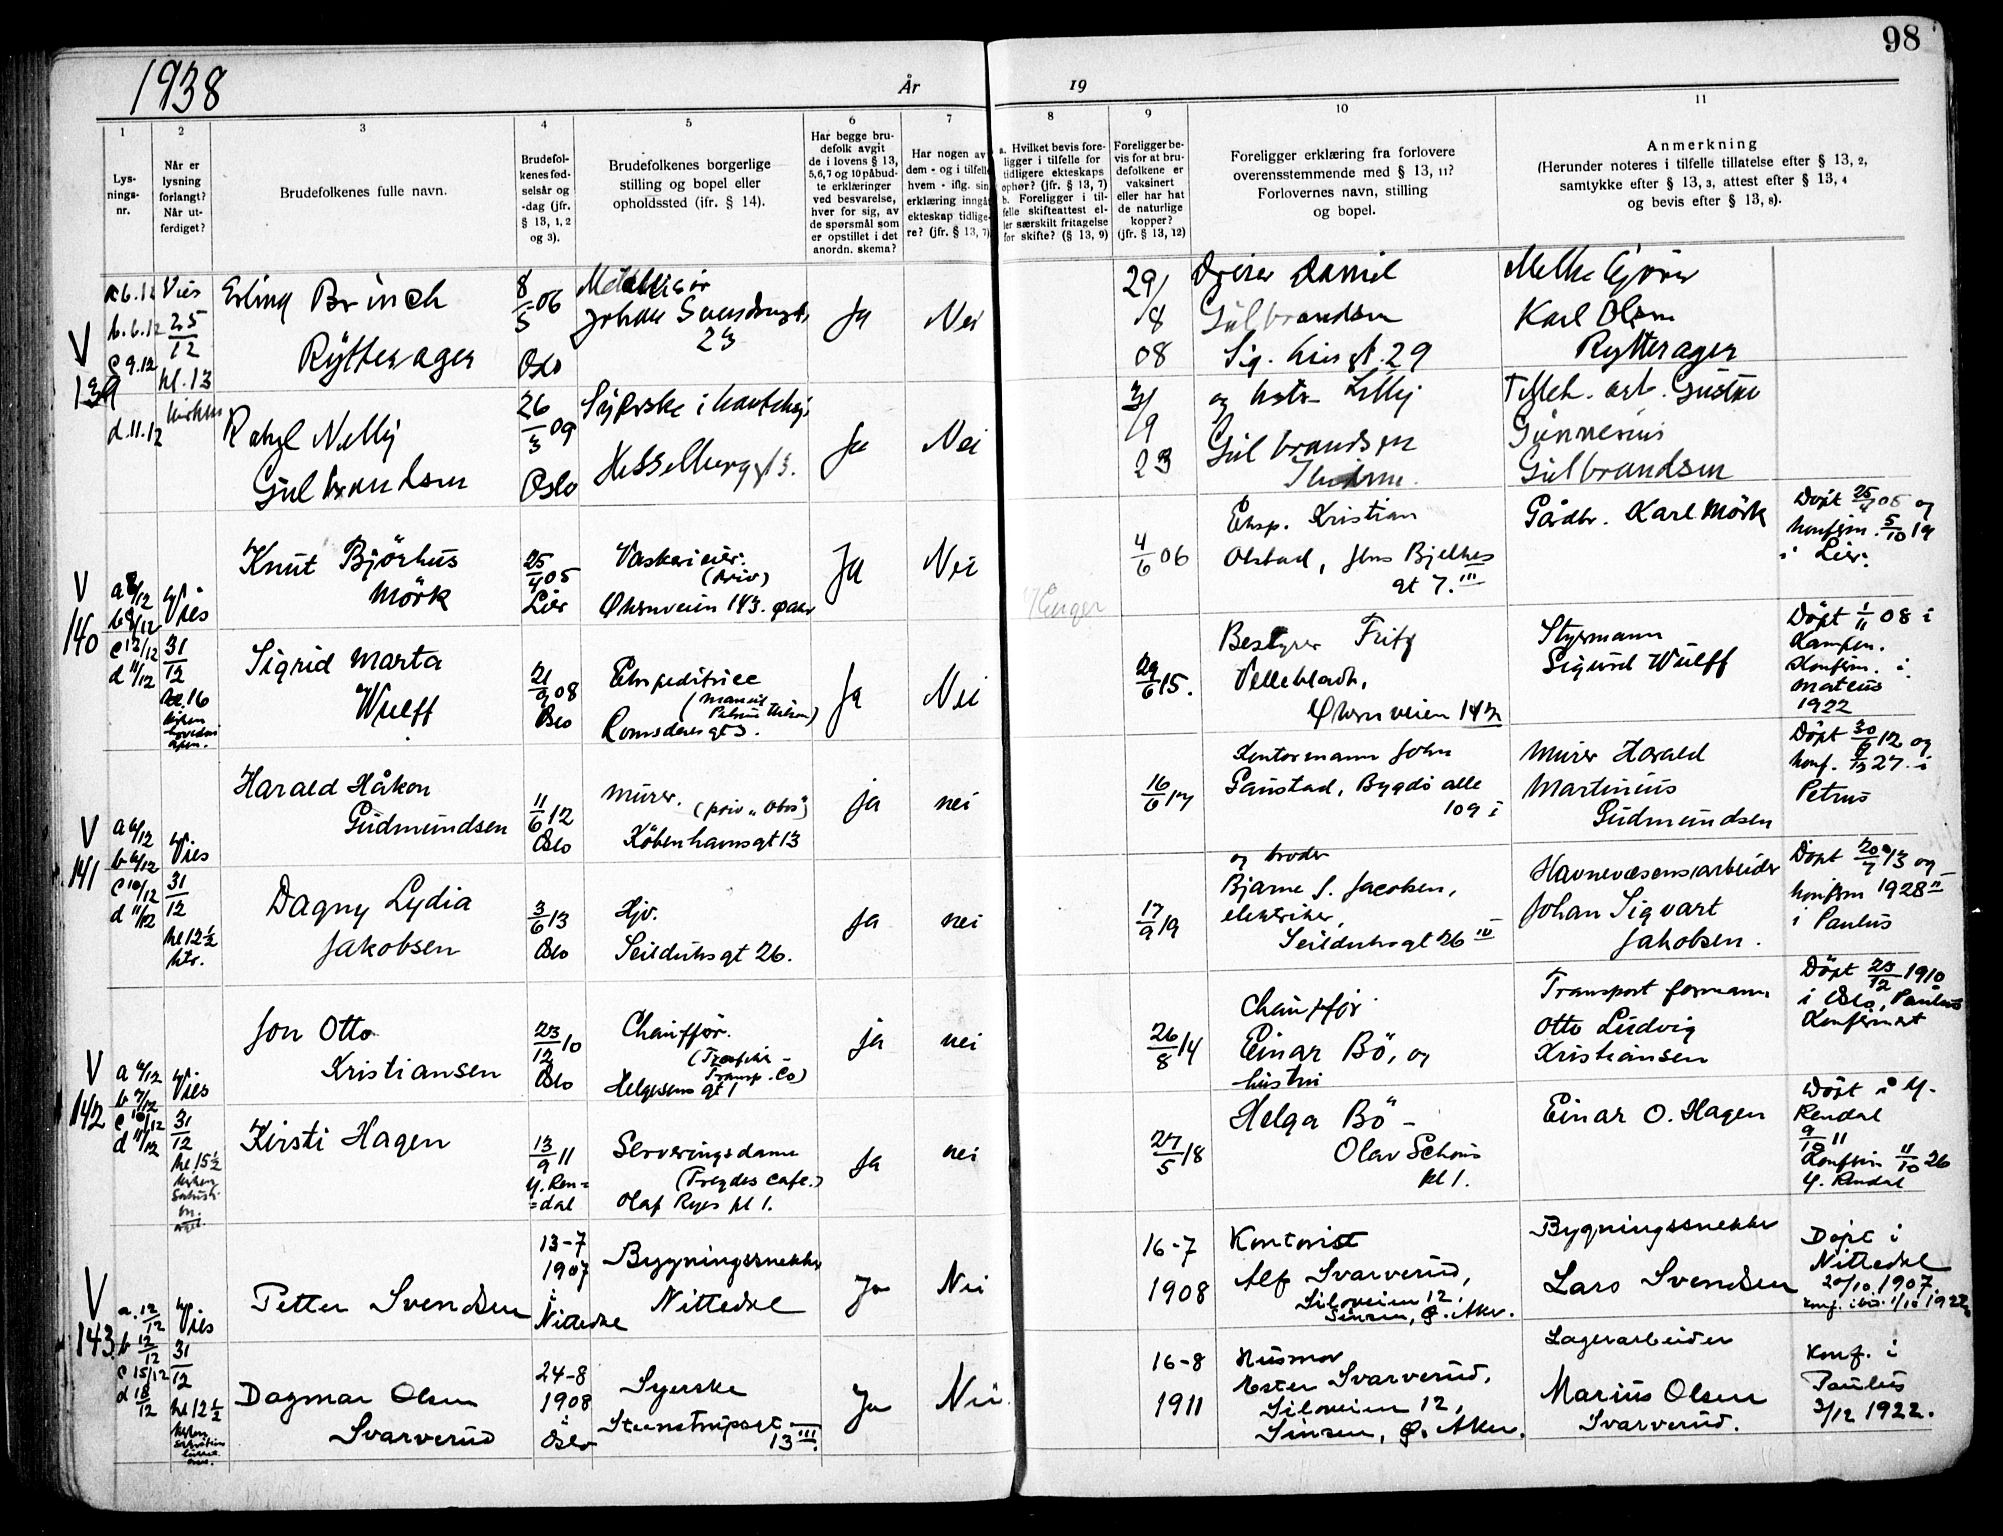 98
1938
År
19
1
2
3
4
5
6
7
8
9
10
11
Lys-
nings-
nr.
Når er
lysning
forlangt?
Når ut-
ferdiget?
Brudefolkenes fulle navn.
Brudefol-
kenes fød-
selsår og
-dag (jfr.
§ 13, 1, 2
og 3).
Brudefolkenes borgerlige
stilling og bopel eller
opholdssted (ifr. § 14).
Har begge bru-
defolk avgit
de i lovens § 13,
5,6,7 og 10 påbud-
te erklæringer
ved besvarelse,
hver for sig, av
de spørsmål som
er opstillet i det
anordn. skema?
Har nogen av
dem - og i tilfelle
hvem - iflg. sin
erklæring inngå
ekteskap tidlige-
re? (jfr. § 13, 7)
a. Hvilket bevis fore-
ligger i tilfelle for
tidligere ekteskaps
ophør? (jfr. § 13, 7)
b. Foreligger i til-
felle skifteattest el-
ler særskilt fritagelse
for skifte? (§ 13, 9)
Foreligger be-
vis for at bru-
defolkene er
vaksinert
eller har hat
de naturlige
kopper?
(jfr. § 13, 12)
Foreligger erklæring fra forlovere
overensstemmende med § 13, 11?
Forlovernes navn, stilling
og bopel.
Anmerkning
(Herunder noteres i tilfelle tillatelse efter § 13, 2,
samtykke efter § 13, 3, attest efter § 13, 4
og bevis efter § 13, 8).
V
139
b. 6.12
c 9.12
d. 11.12
Vies
25/12
kl. 13
Erling Brinch
Rytterager
8/5 06
Oslo
Johan Svendsensgt.
23
Ja
Nei
29/
8
08
Daniel
Gulbrandsen
29
Karl Olsen
Rytterager
Nelly
Gulbrandsen
26/3 09
Oslo
Syerske i
Hesselbergsgt 3.
Ja
Nei
3/
9
23
og Lilly
Gulbrandsen
Gunnerius
Gulbrandsen
V
140
a 8/12
b 8/12
c 12/12
d 11/12
Vies
31/12
kl. 16
Knut Bjørhus
Mörk
25/4 05
Lier
Vaskerieier.
(priv)
Økernveien 143. Ø aker
Ja
Nei
4/6 06
Eksp. Kristian
Olstad, Jens Bjelkes
gt 7. III
Gårdbr. Karl Mörk
Döpt 25/4 05 og
konfirm. 5/10 19
i Lier.
Sigrid Marta
Wulff
21/9 08
Oslo
Ekspeditrice
Romsdalsgt 3.
Ja
Nei
29/6 15.
Bestyrer Fritz
Vellebladh,
Økernveien 143
Styrmann
Sigurd Wulff
Döpt 1/11 08 i
Kampen.
Konfirm. i
Mateus
1922
V
141
a 6/12
b 6/12
c 10/12
d 11/12
Vies
31/12
kl 12 1/2
ktr.
Harald Håkon
Gudmundsen
11/6 12
Oslo
Murer.
(priv „Obos")
Köbenhavnsgt 13
Ja
nei
16/6 17
Kontormann John
Paustad, Bygdö alle
109 i
Murer Harald
Martinius
Gudmundsen
Döpt 30/6 12 og
konf. 27 i
Petrus
Dagny Lydia
Jakobsen
3/6 13
Oslo
Hjv.
Seilduksgt 26.
Ja
nei
17/9 19
og broder
Bjarne S. Jacobsen,
elektriker,
Seilduksgt 26 IV
Havnevæsensarbeider
Johan Sigvart
Jakobsen.
Döpt 20/7 13 og
konfirm 1928
i Paulus
V
142
a 6/12
b 7/12
c 10/12
d 11/12
Vies
31/12
kl 15 1/2
Jon Otto
Kristiansen
23/12 10
Oslo
Chauffør.
Transp. Co)
Helgesens gt 1
Ja
nei
26/8 14
Chauffør
Einar Bö, og
hustru
Transport formann
Otto Ludvig
Kristiansen
Döpt 23/12 1910
i Oslo, Paulus
Konfirmert
Kirsti Hagen
13/9 11
Y. Ren=
=dal
Serveringsdame
(Fregdes cafe.)
Olaf Ryes pl 1.
Ja
nei
27/5 18
Helga Bö -
Olav Schous
pl 1.
Einar O. Hagen
Döpt i Y.
Rendal
9/10 11
Konfirm 11/10 26
Y. Rendal
V
143
a. 12/12
b 12/12
c 15/12
d 18/12
Vies
31/12
kl 12 1/2
Petter Svendsen
13-7
1907
i
Nittedal
Bygningssnekker
Nittedal
Ja
Nei
16-7
1908
Kontorist
Alf Svarverud,
Siloveien 12,
Sinsen, Ø. Aker.
Bygningssnekker
Lars Svendsen
Döpt i
Nittedal
20/10. 1907.
Dagmar Olsen
Svarverud
24-8
1908
i
Oslo
Syerske
Steenstrupsgt.
13 III.
Ja
Nei
16-8
1911
Husmor
Ester Svarverud,
Siloveien 12,
Sinsen, Ø. Aker.
Lagerarbeider
Marius Olsen
Svarverud.
Konf. i
Paulus
3/12 1922.